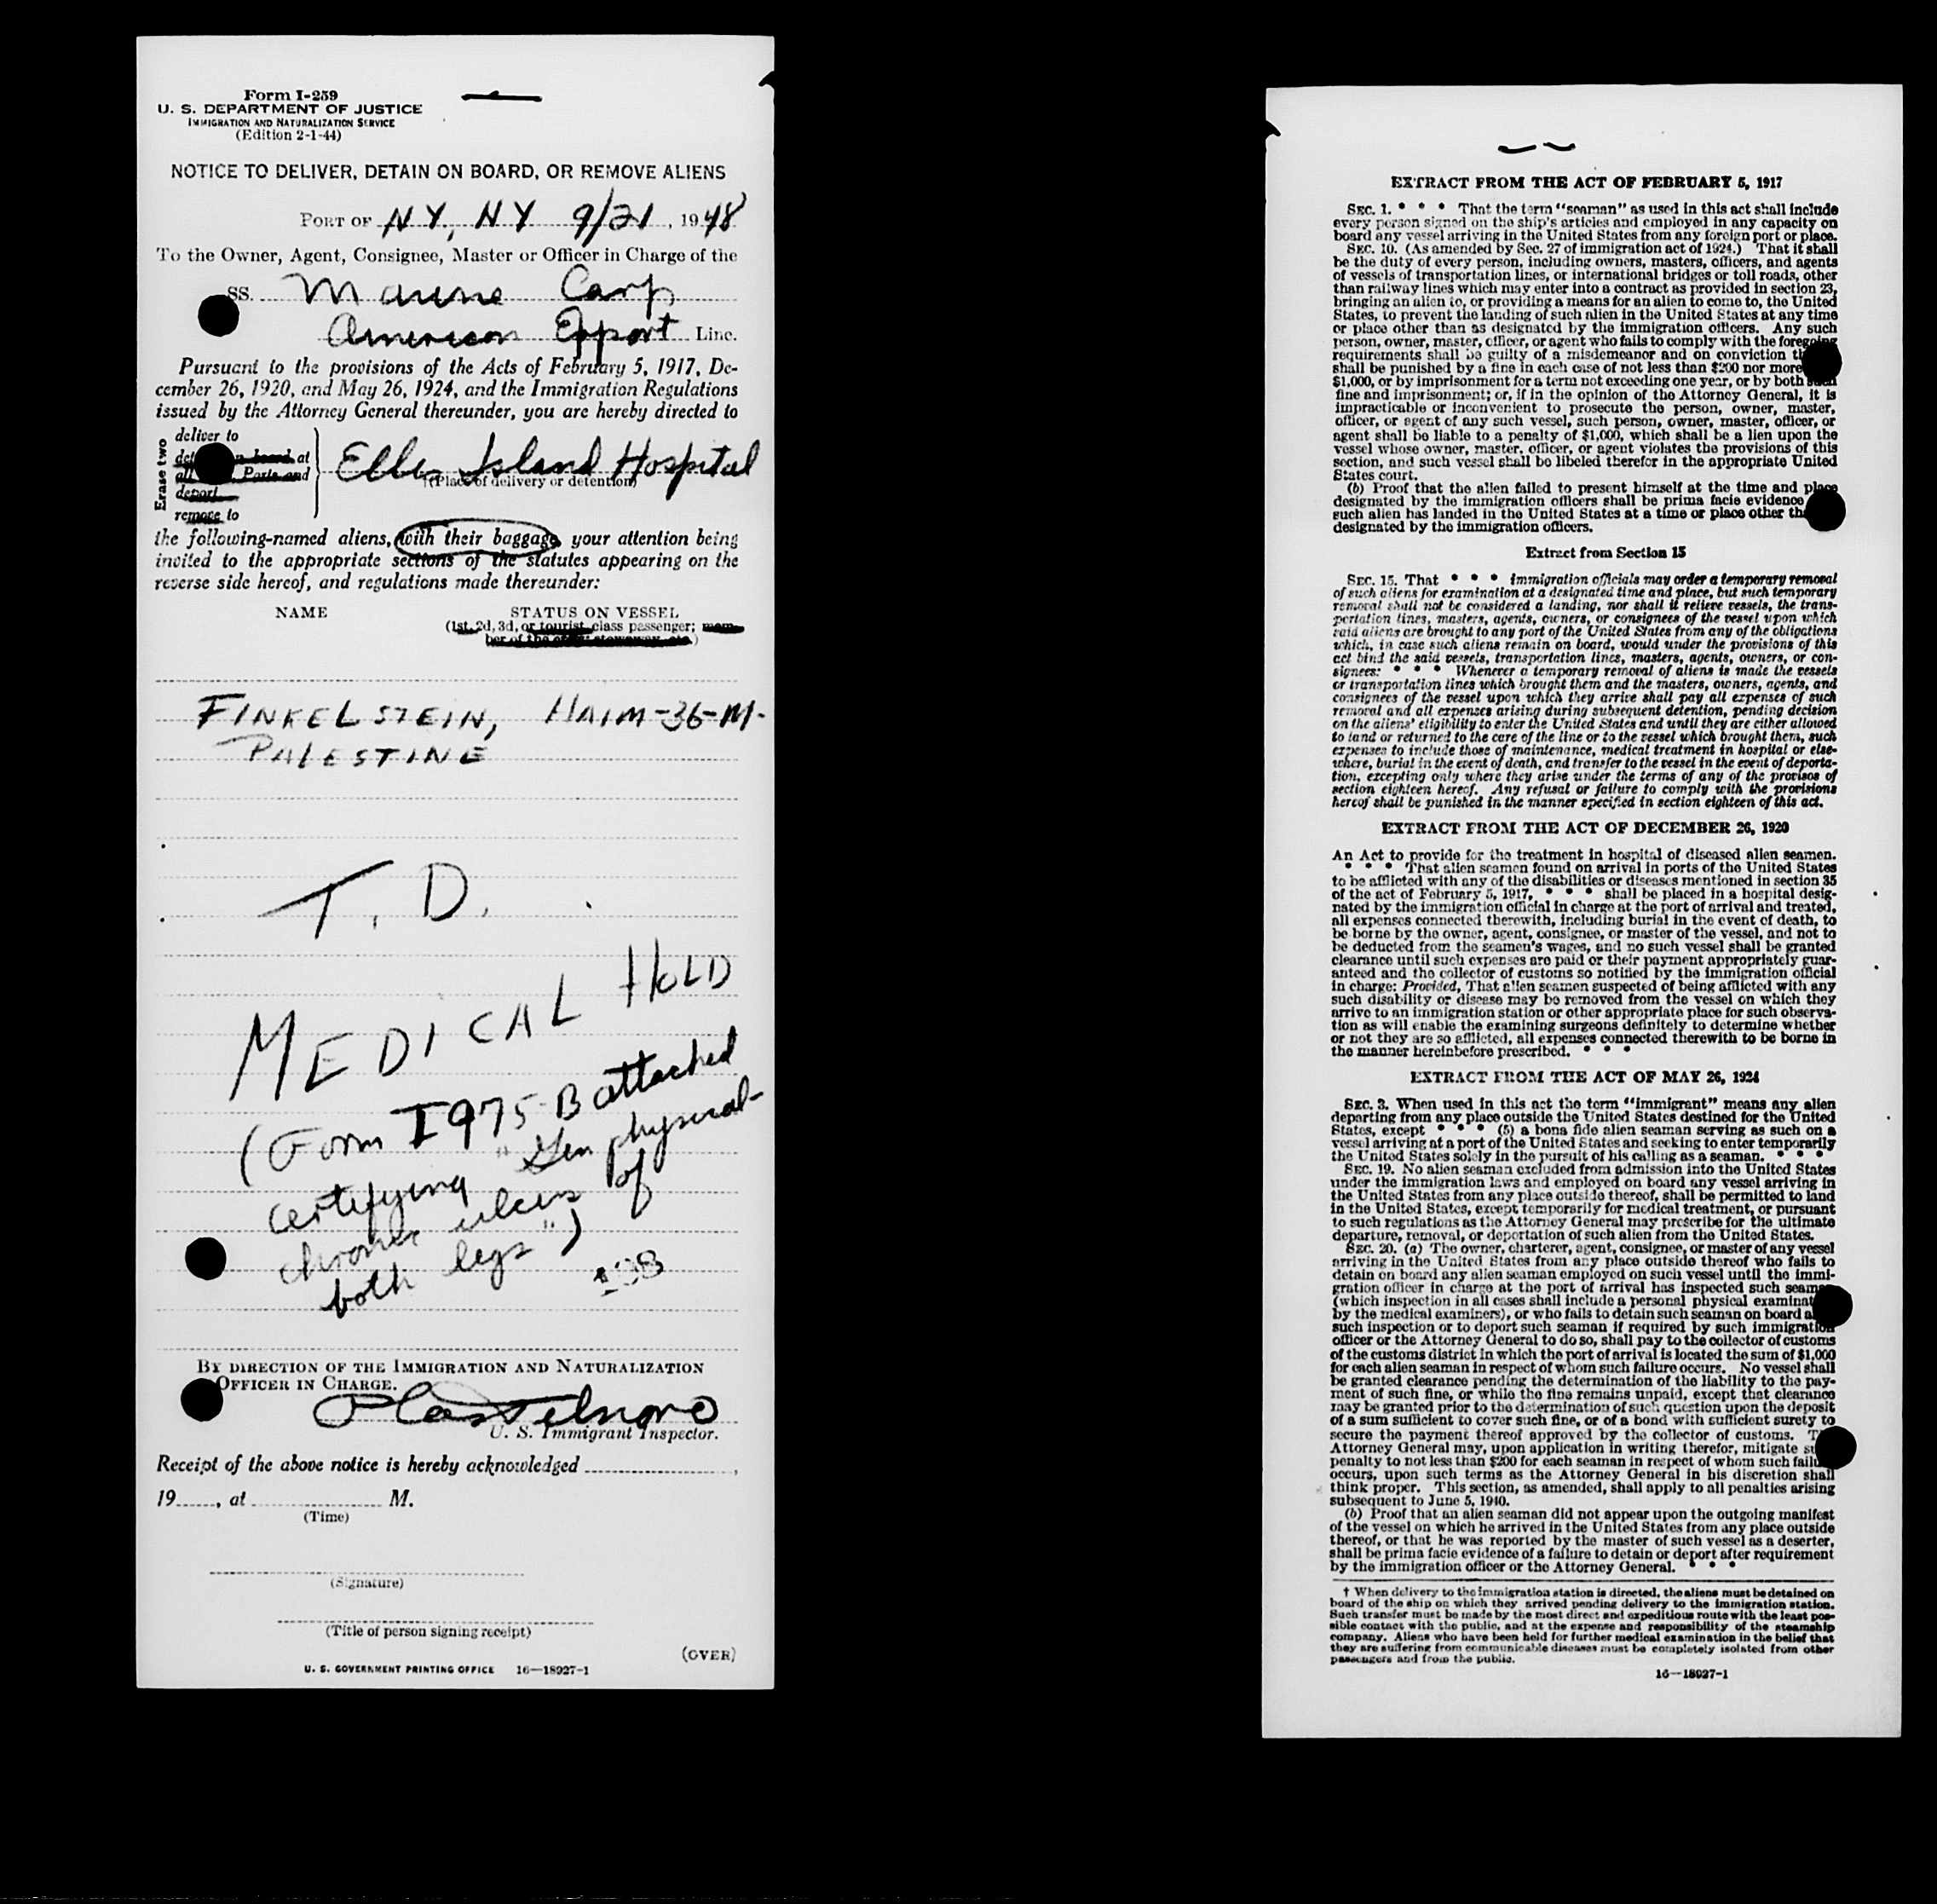 Form I-259
U. S. DEPARTMENT OF JUSTICE
IMMIGRATION AND NATURALIZATION SERVICE
(Edition 2-1-44)
NOTICE TO DELIVER, DETAIN ON BOARD, OR REMOVE ALIENS
PORT OF NY, NY 9/21, 1948
To the Owner, Agent, Consignee, Master or Officer in Charge of the
SS. Marine Carp
American Export Line.
Pursuant to the provisions of the Acts of February 5, 1917, De-
cember 26, 1920, and May 26, 1924, and the Immigration Regulations
issued by the Attorney General thereunder, you are hereby directed to
Erase two
deliver to
board at
Ports and
deport
remove to
Ellis Island Hospital
†(Place of delivery or detention)
the following-named aliens, with their baggage, your attention being
invited to the appropriate sections of the statutes appearing on the
reverse side hereof, and regulations made thereunder:
NAME STATUS ON VESSEL
(1st, 2d, 3d, or tourist class passenger; mem-
ber of the crew, stowaway, etc.)
FINKELSTEIN, HAIM-36-M-
PALESTINE
T. D.
MEDICAL HOLD
(Form I 975-B attached
certifying "Gen physical-
chronic ulcers of
both legs")
BY DIRECTION OF THE IMMIGRATION AND NATURALIZATION
OFFICER IN CHARGE.
U. S. Immigrant Inspector.
Receipt of the above notice is hereby acknowledged ,
19 , at M.
(Time)
(Signature)
(Title of person signing receipt)
(OVER)
U. S. GOVERNMENT PRINTING OFFICE 16—18927-1
EXTRACT FROM THE ACT OF FEBRUARY 5, 1917
SEC. 1. * * * That the term "seaman" as used in this act shall include
every person signed on the ship's articles and employed in any capacity on
board any vessel arriving in the United States from any foreign port or place.
SEC. 10. (As amended by Sec. 27 of immigration act of 1924.) That it shall
be the duty of every person, including owners, masters, officers, and agents
of vessels of transportation lines, or international bridges or toll roads, other
than railway lines which may enter into a contract as provided in section 23,
bringing an alien to, or providing a means for an alien to come to, the United
States, to prevent the landing of such alien in the United States at any time
or place other than as designated by the immigration officers. Any such
person, owner, master, officer, or agent who fails to comply with the foregoing
requirements shall be guilty of a misdemeanor and on conviction
shall be punished by a fine in each case of not less than $200 nor more
$1,000, or by imprisonment for a term not exceeding one year, or by both such
fine and imprisonment; or, if in the opinion of the Attorney General, it is
impracticable or inconvenient to prosecute the person, owner, master,
officer, or agent of any such vessel, such person, owner, master, officer, or
agent shall be liable to a penalty of $1,000, which shall be a lien upon the
vessel whose owner, master, officer, or agent violates the provisions of this
section, and such vessel shall be libeled therefor in the appropriate United
States court.
(b) Proof that the alien failed to present himself at the time and place
designated by the immigration officers shall be prima facie evidence
such alien has landed in the United States at a time or place other
designated by the immigration officers.
Extract from Section 15
SEC. 15. That * * * immigration officials may order a temporary removal
of such aliens for examination at a designated time and place, but such temporary
removal shall not be considered a landing, nor shall it relieve vessels, the trans-
portation lines, masters, agents, owners, or consignees of the vessel upon which
said aliens are brought to any port of the United States from any of the obligations
which, in case such aliens remain on board, would under the provisions of this
act bind the said vessels, transportation lines, masters, agents, owners, or con-
signees: * * * Whenever a temporary removal of aliens is made the vessels
or transportation lines which brought them and the masters, owners, agents, and
consignees of the vessel upon which they arrive shall pay all expenses of such
removal and all expenses arising during subsequent detention, pending decision
on the aliens' eligibility to enter the United States and until they are either allowed
to land or returned to the care of the line or to the vessel which brought them, such
expenses to include those of maintenance, medical treatment in hospital or else-
where, burial in the event of death, and transfer to the vessel in the event of deporta-
tion, excepting only where they arise under the terms of any of the provisos of
section eighteen hereof. Any refusal or failure to comply with the provisions
hereof shall be punished in the manner specified in section eighteen of this act.
EXTRACT FROM THE ACT OF DECEMBER 26, 1920
An Act to provide for the treatment in hospital of diseased alien seamen.
* * * That alien seamen found on arrival in ports of the United States
to be afflicted with any of the disabilities or diseases mentioned in section 35
of the act of February 5, 1917, * * * shall be placed in a hospital desig-
nated by the immigration official in charge at the port of arrival and treated,
all expenses connected therewith, including burial in the event of death, to
be borne by the owner, agent, consignee, or master of the vessel, and not to
be deducted from the seamen's wages, and no such vessel shall be granted
clearance until such expenses are paid or their payment appropriately guar-
anteed and the collector of customs so notified by the immigration official
in charge: Provided, That alien seamen suspected of being afflicted with any
such disability or disease may be removed from the vessel on which they
arrive to an immigration station or other appropriate place for such observa-
tion as will enable the examining surgeons definitely to determine whether
or not they are so afflicted, all expenses connected therewith to be borne in
the manner hereinbefore prescribed. * * *
EXTRACT FROM THE ACT OF MAY 26, 1924
SEC. 3. When used in this act the term "immigrant" means any alien
departing from any place outside the United States destined for the United
States, except * * * (5) a bona fide alien seaman serving as such on a
vessel arriving at a port of the United States and seeking to enter temporarily
the United States solely in the pursuit of his calling as a seaman. * * *
SEC. 19. No alien seaman excluded from admission into the United States
under the immigration laws and employed on board any vessel arriving in
the United States from any place outside thereof, shall be permitted to land
in the United States, except temporarily for medical treatment, or pursuant
to such regulations as the Attorney General may prescribe for the ultimate
departure, removal, or deportation of such alien from the United States.
SEC. 20. (a) The owner, charterer, agent, consignee, or master of any vessel
arriving in the United States from any place outside thereof who fails to
detain on board any alien seaman employed on such vessel until the immi-
gration officer in charge at the port of arrival has inspected such seaman
(which inspection in all cases shall include a personal physical examination
by the medical examiners), or who fails to detain such seaman on board
such inspection or to deport such seaman if required by such immigration
officer or the Attorney General to do so, shall pay to the collector of customs
of the customs district in which the port of arrival is located the sum of $1,000
for each alien seaman in respect of whom such failure occurs. No vessel shall
be granted clearance pending the determination of the liability to the pay-
ment of such fine, or while the fine remains unpaid, except that clearance
may be granted prior to the determination of such question upon the deposit
of a sum sufficient to cover such fine, or of a bond with sufficient surety to
secure the payment thereof approved by the collector of customs. The
Attorney General may, upon application in writing therefor, mitigate such
penalty to not less than $200 for each seaman in respect of whom such failure
occurs, upon such terms as the Attorney General in his discretion shall
think proper. This section, as amended, shall apply to all penalties arising
subsequent to June 5, 1940.
(b) Proof that an alien seaman did not appear upon the outgoing manifest
of the vessel on which he arrived in the United States from any place outside
thereof, or that he was reported by the master of such vessel as a deserter,
shall be prima facie evidence of a failure to detain or deport after requirement
by the immigration officer or the Attorney General. * * *
† When delivery to the immigration station is directed, the aliens must be detained on
board of the ship on which they arrived pending delivery to the immigration station.
Such transfer must be made by the most direct and expeditious route with the least pos-
sible contact with the public, and at the expense and responsibility of the steamship
company. Aliens who have been held for further medical examination in the belief that
they are suffering from communicable diseases must be completely isolated from other
passengers and from the public.
16—18927-1